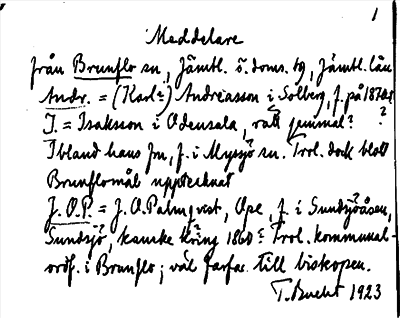 1
Meddelare
från Brunflo sn., Jämtl. ö. doms. bg, Jämtl. län
Andr. = (Karl?) Andreasson i Solberg, f. på 1870t.
I. = Isaksson i Odensala, rätt gammal? ?
Ibland hans fru, f. i Myssjö sn. Trol. dock blott
Brunflomål upptecknat
J. O. P. = J. O. Palmqvist, Ope, f. i Sundsjöåsen,
Sundsjö, kanske kring 1860? Trol. kommunal-
ordf. i Brunflo; väl farfar till biskopen.
T. Bucht 1923